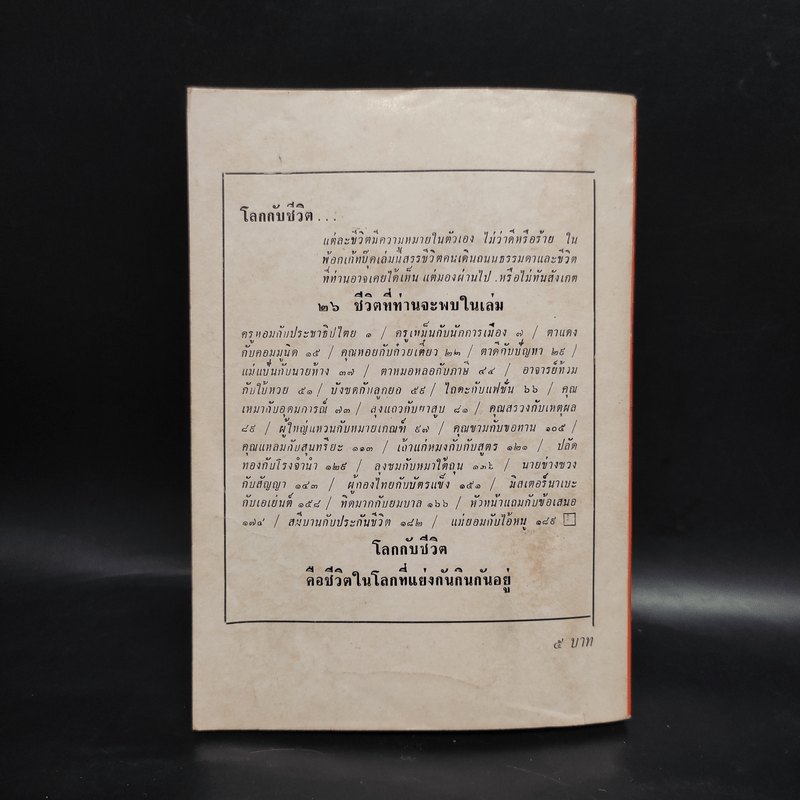 โลกกับชีวิต . . .
แต่ละชีวิตมีความหมายในตัวเอง ไม่ว่าดีหรือร้าย ใน
พ้อกเก้ทบุ๊คเล่มนี้สรรชีวิตคนเดินถนนธรรมดาและชีวิต
ที่ท่านอาจเคยได้เห็น แต่มองผ่านไป . หรือไม่ทันสังเกต
๒๖ ชีวิตที่ท่านจะพบในเล่ม
ครูหอมกับประชาธิปไตย ๑ / ครูเหม็นกับนักการเมือง ๗ / ตาแดง
กับคอมมูนิต ๑๕ / คุณหอยกับก๋วยเตี๋ยว ๒๒ / ตาดีกับปัญหา ๒๙ /
แม่แป้นกับนายห้าง ๓๗ / ตาหมอหลอกับภาษี ๔๔ / อาจารย์ท้วม
กับใบ้หวย ๕๑ / บังชดกับลูกยอ ๕๙ / ไถคะกับแฟชั่น ๖๖ / คุณ
เหมากับอุดมการณ์ ๗๓ / ลุงแถวกับยาสูบ ๘๑ / คุณสรวงกับเหตุผล
๘๙ / ผู้ใหญ่แหวนกับหมายเกณฑ์ ๙๗ / คุณขามกับขอทาน ๑๐๕ /
คุณแหลมกับสุนทรียะ ๑๑๓ / เถ้าแก่หมงกับกับสูตร ๑๒๑ / ปลัด
ทองกับโรงจำนำ ๑๒๙ / ลุงชมกับหมาใต้ถุน ๑๓๖ / นายช่างขวง
กับสัญญา ๑๔๓ / ผู้กองไทยกับบัตรแข็ง ๑๕๑ / มิสเตอร์นาเบะ
กับเอเย่นต์ ๑๕๘ / ทิดมากกับยมบาล ๑๖๖ / หัวหน้าแถมกับข้อเสนอ
๑๗๔ / สมีบานกับประกันชีวิต ๑๘๒ / แม่ยอมกับไอ้หนู ๑๘๙
โลกกับชีวิต
คือชีวิตในโลกที่แย่งกันกินกันอยู่
๕ บาท